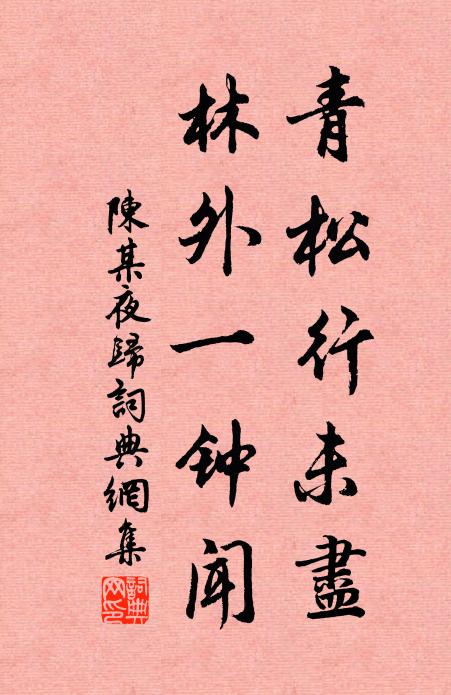 青松行未盡
林外一钟闻
陳某夜歸詞典網集
詞典
网印